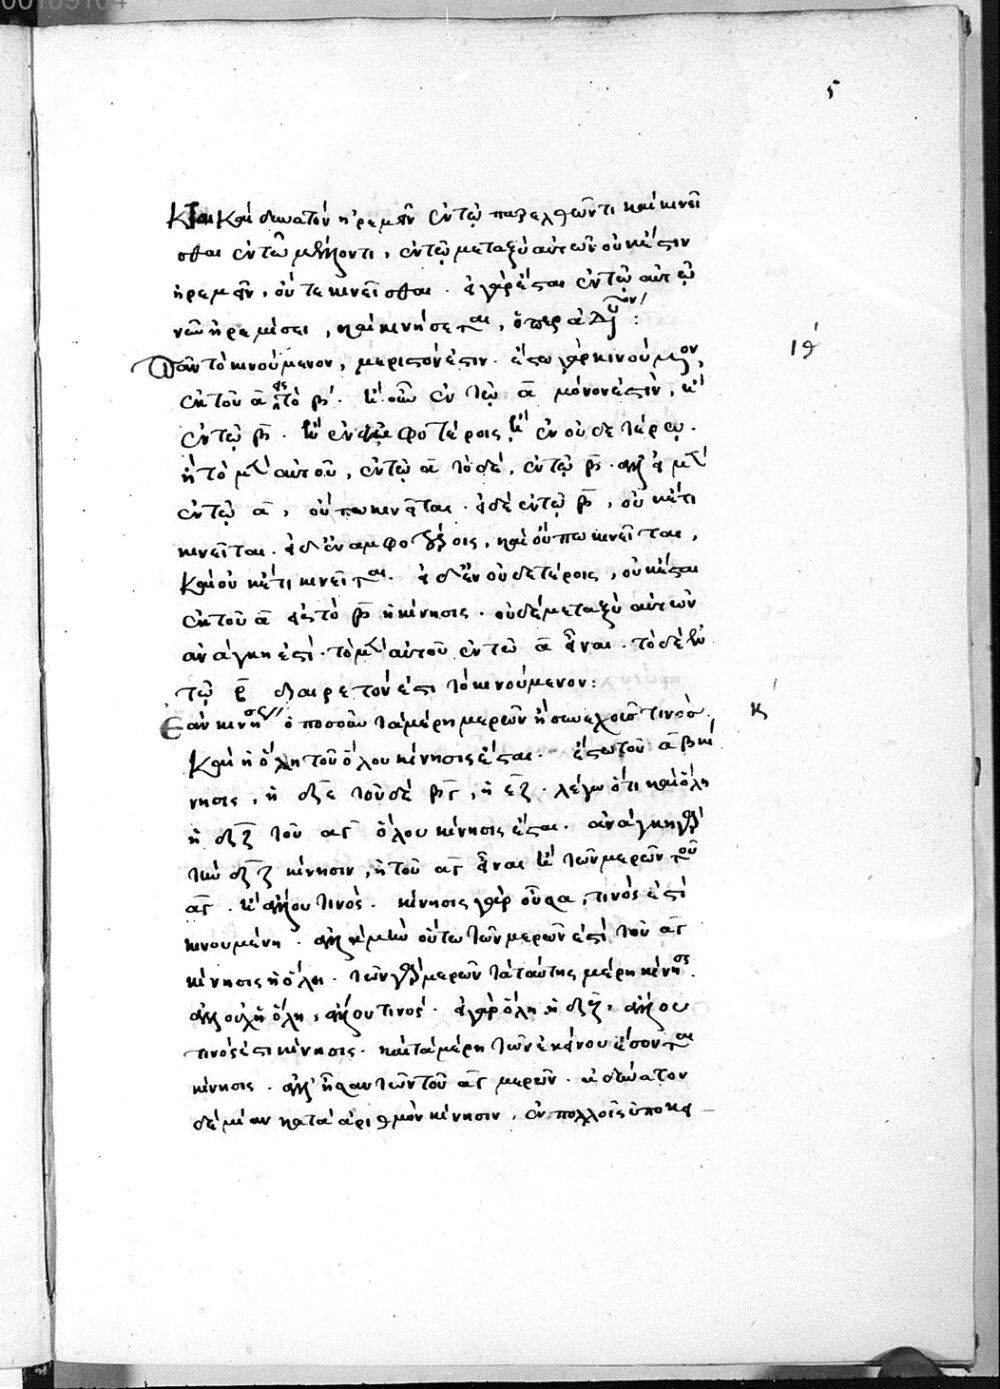 00109104
5
καὶ δυνατὸν ἠρεμεῖν ἐν τῷ παρελθόντι καὶ κινεῖ
σθαι ἐν τῷ μέλλοντι, ἐν τῷ μεταξὺ αὐτῶν οὐκ ἔστιν
ἠρεμεῖν, οὔτε κινεῖσθαι. εἰ γὰρ ἔσται ἐν τῷ αὐτῷ
νῦν ἠρεμήσει, καὶ κινήσεται, ὅπερ ἀδύνατον:
Πᾶν τὸ κινούμενον, μεριστόν ἐστιν. ἔστω γὰρ κινούμενον, ιθ
ἐκ τοῦ α εἰς τὸ β. ἢ οὖν ἐν τῷ α μόνον ἐστὶν, ἢ
ἐν τῷ β. ἢ ἐν ἀμφοτέροις, ἢ ἐν οὐδετέρῳ.
ἢ τὸ μὲν αὐτοῦ, ἐν τῷ α τὸ δὲ, ἐν τῷ β. ἀλλ' εἰ μὲν
ἐν τῷ α, οὔπω κινεῖται. εἰ δὲ ἐν τῷ β, οὐκέτι
κινεῖται. εἰ δ' ἐν ἀμφοτέροις, καὶ οὔπω κινεῖται,
καὶ οὐκέτι κινεῖται. εἰ δ' ἐν οὐδετέροις, οὐκ ἔσται
ἐκ τοῦ α εἰς τὸ β ἡ κίνησις. οὐδὲ μεταξὺ αὐτῶν
ἀνάγκη ἐστὶ. τὸ μὲν αὐτοῦ ἐν τῷ α εἶναι. τὸ δὲ ἐν
τῷ β διαιρετόν ἐστι τὸ κινούμενον:
Ἐὰν κινῆσιν ὁποσαοῦν τὰ μέρη μερῶν ἡ συνεχοῦς τινος, κ
καὶ ἡ ὅλη τοῦ ὅλου κίνησις ἔσται. ἔστω τοῦ αβ κί
νησις, ἡ δε τοῦ δὲ βγ, ἡ εζ. λέγω ὅτι καὶ ὅλη
ἡ δζ τοῦ αγ ὅλου κίνησις ἔσται. ἀνάγκη γὰρ
τὴν δζ κίνησιν, ἢ τοῦ αγ εἶναι ἢ τῶν μερῶν τοῦ
αγ. ἢ ἄλλου τινός. κίνησις γὰρ οὖσα, τινός ἐστι
κινουμένη. ἀλλ' εἰ μὲν οὕτω τῶν μερῶν ἐστὶ τοῦ αγ
κίνησις ἡ ὅλη. τῶν γὰρ μερῶν τὰ ταύτης μέρη κίνησις.
ἀλλ' οὐχ ἡ ὅλη, ἄλλου τινός. εἰ γὰρ ὅλη ἡ δζ, ἄλλου
τινός ἐστι κίνησις. καὶ τὰ μέρη τῶν ἐκείνου ἔσονται
κίνησις. ἀλλ' ἦσαν τῶν τοῦ αγ μερῶν. ἀδύνατον
δὲ μίαν κατὰ ἀριθμὸν κίνησιν, ἐν πολλοῖς ὑποκει